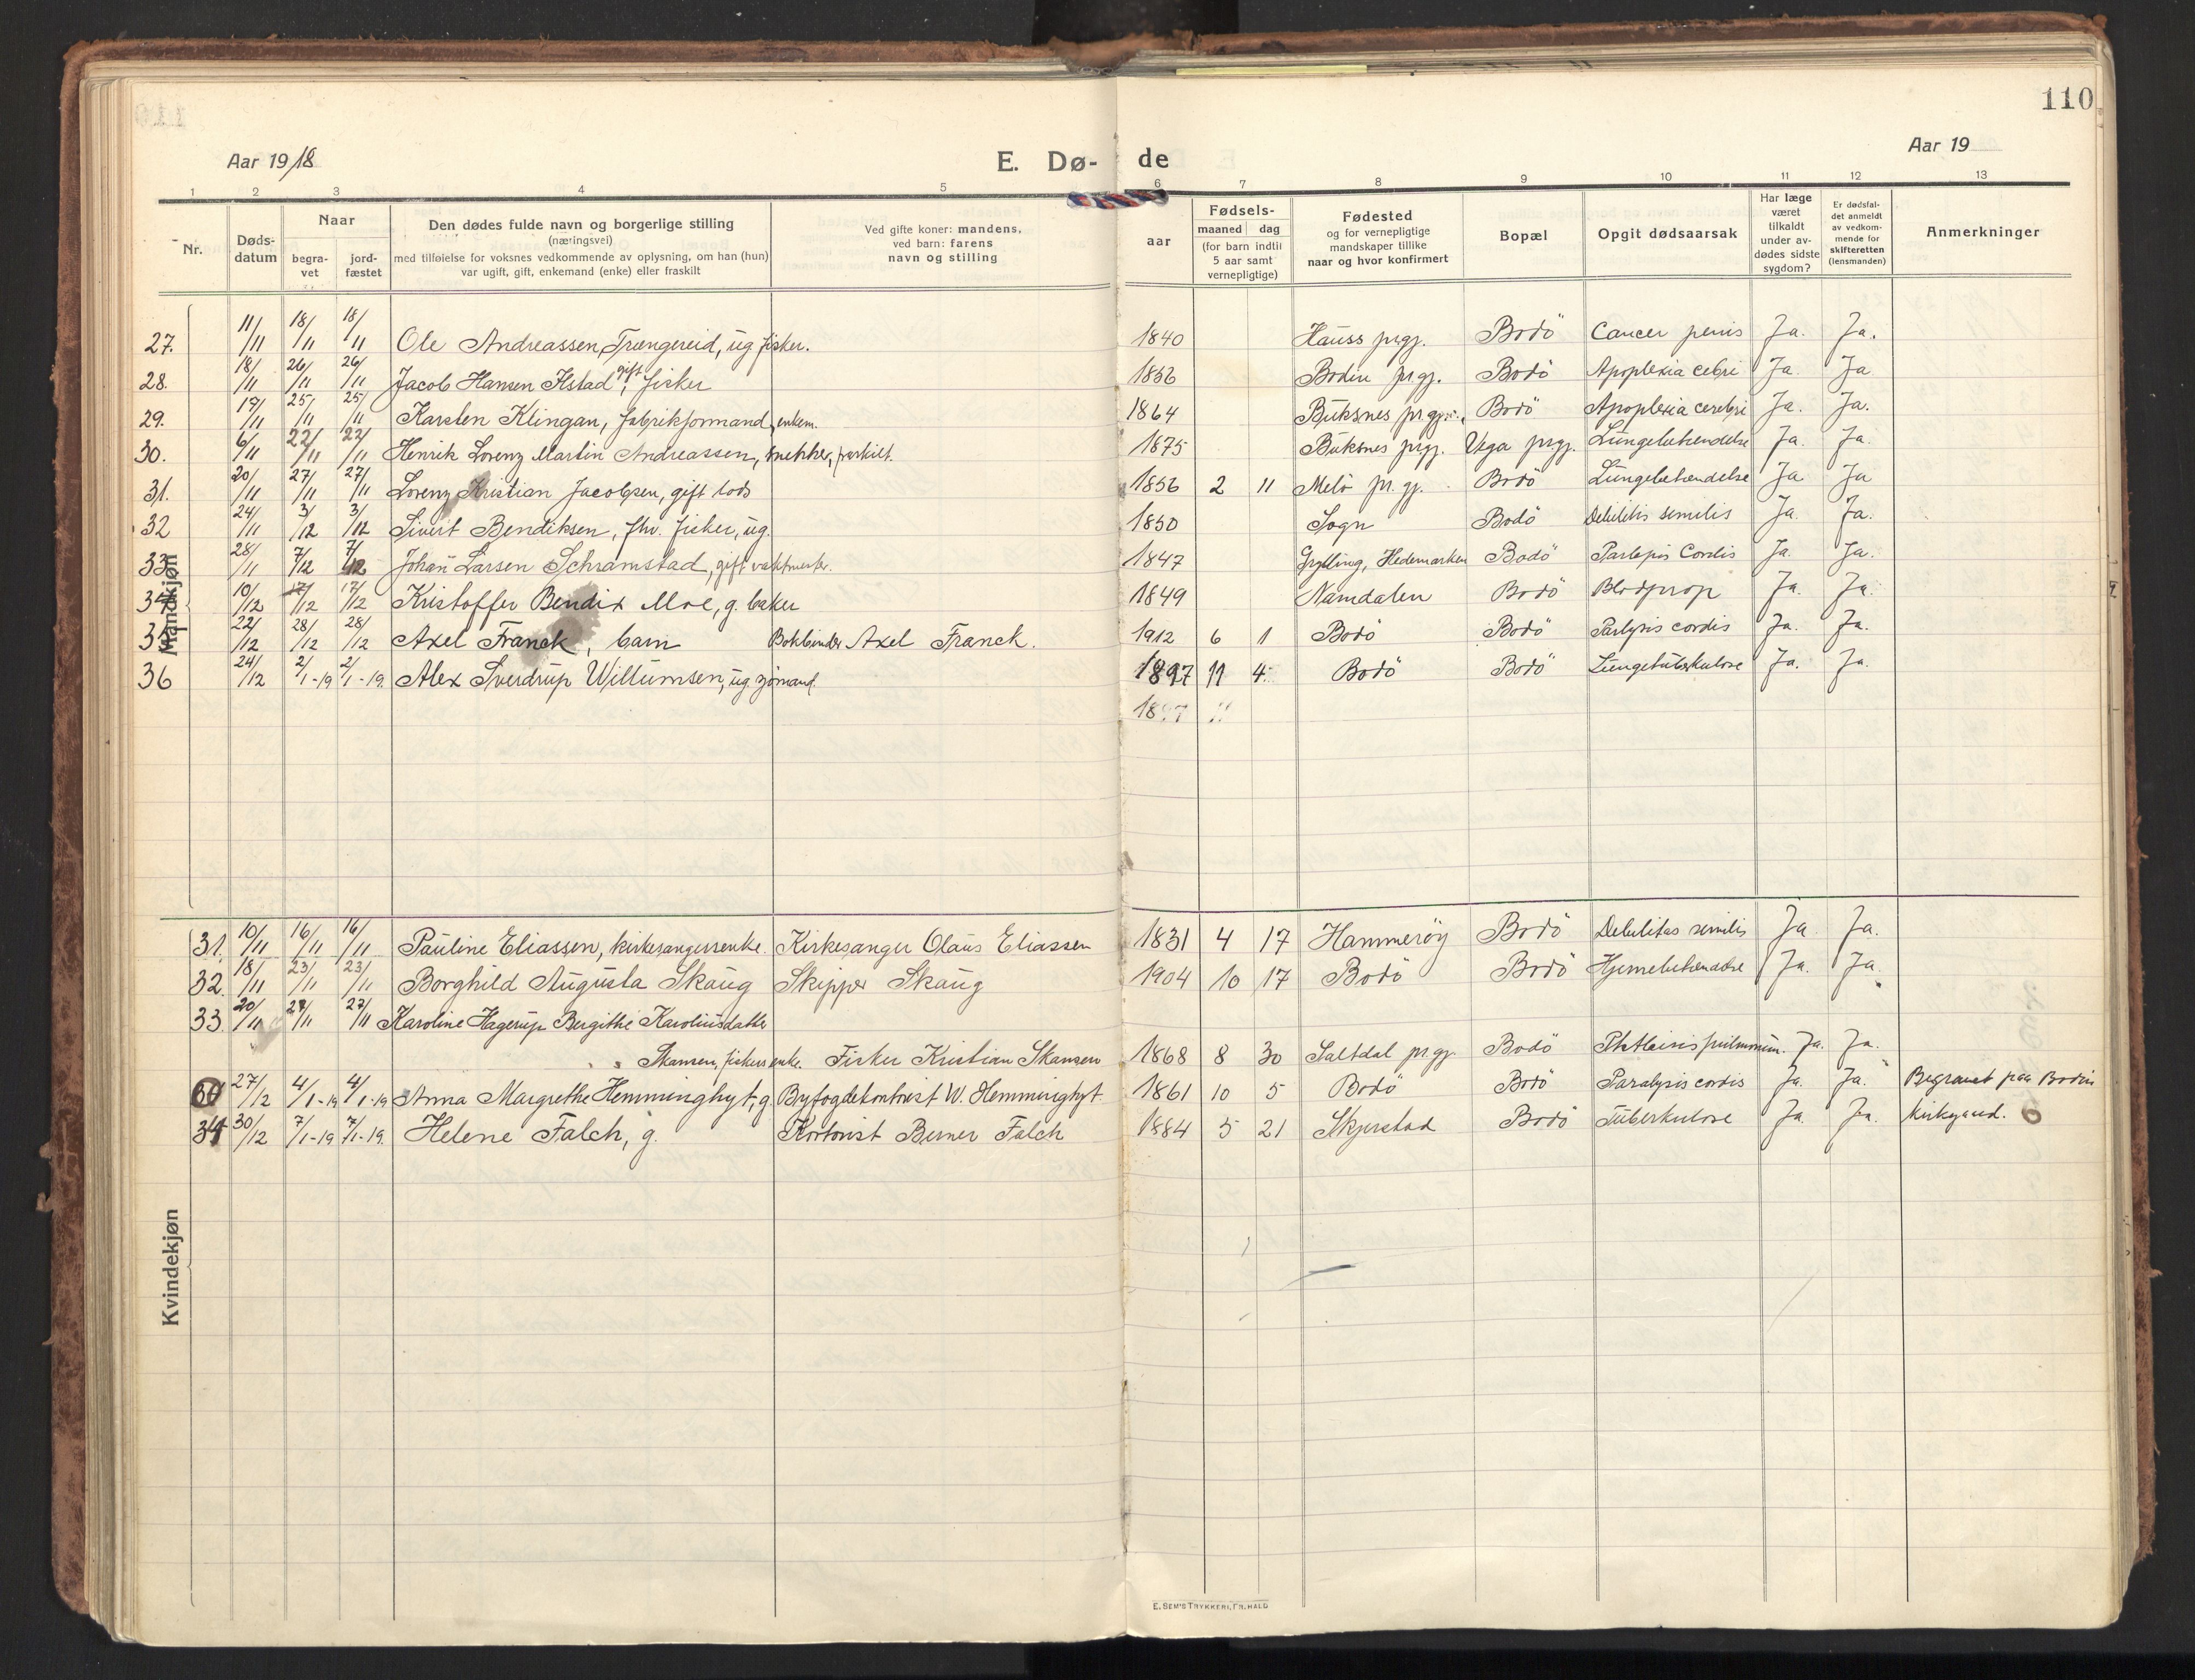 110
Aar 1918 E. Dø- de Aar 19
1 2 3 4 5 6 7 8 9 10 11 12 13
Nr. Døds-datum Naar begra-vet jord-fæstet Den dødes fulde navn og borgerlige stilling (næringsvei) med tilføielse for voksnes vedkommende av oplysning, om han (hun) var ugift, gift, enkemand (enke) eller fraskilt Ved gifte koner: mandens, ved barn: farens navn og stilling aar Fødsels- maaned dag (for barn indtil 5 aar samt vernepligtige) Fødested og for vernepligtige mandskaper tillike naar og hvor konfirmert Bopæl Opgit dødsaarsak Har læge været tilkaldt under av-dødes sidste sygdom? Er dødsfal-det anmeldt av vedkom-mende for skifteretten (lensmanden) Anmerkninger
Mandkjøn
27. 11/11 18/11 18/11 Ole Andreassen Trængereid, ug fisker. 1840 Hauss prgj. Bodö Cancer penis Ja. Ja.
28. 18/11 26/11 26/11 Jacob Hansen Ilstad gift, fisker 1836 Bodin pr.gj. Bodö Apoplexia cebri Ja Ja
29. 19/11 25/11 25/11 Karsten Klingan, fabrikformand, enkem. 1864 Buksnes pr.gj. Bodö Apoplexia cerebri Ja. Ja.
30. 6/11 22/11 22/11 Henrik Lorenz Martin Andreassen, snekker, fraskilt. 1875 Buksnes prgj. Vega prgj. Lungebetændelse Ja. Ja.
31. 20/11 27/11 27/11 Lorenz Kristian Jacobsen, gift lods 1856 2 11 Melö pr.gj. Bodö Lungebetændelse Ja Ja
32 24/11 3/12 3/12 Sivert Bendiksen, fhv. fisker, ug. 1850 Sogn Bodö Debilitis semilis Ja. Ja.
33 28/11 7/12 7/12 Johan Larsen Schramstad, gift vaktmester. 1847 Grylling, Hedemarken Bodö Parlepis Cordis Ja. Ja.
34 10/12 17/12 17/12 Kristoffer Bendix Moe, g. baker 1849 Namdalen Bodö Blodprop Ja. Ja.
35 22/12 28/12 28/12 Axel Franck, barn Bokbinder Axel Franck. 1912 6 1 Bodö Bodö Parlysis cordis Ja. Ja.
36 24/12 2/1-19 2/1-19. Alex Sverdrup Willumsen, ug sjømand. 1897 11 4. Bodö Bodö Lungetuberkulose Ja. Ja.
1897 11
Kvindekjøn
31. 10/11 16/11 16/11 Pauline Eliassen, kirkesangersenke. Kirkesanger Olaus Eliassen 1831 4 17 Hammerøy Bodö Debilitas semilis Ja Ja.
32. 18/11 23/11 23/11 Borghild Augusta Skaug Skipper Skaug 1904 10 17 Bodö Bodö Hjernebetændelse Ja. Ja.
33. 20/11 27/11 27/11 Karoline Hagerup Bergithe Karolinsdatter
Skansen, fiskersenke. Fisker Kristian Skansen 1868 8 30 Saltdal pr.gj. Bodö Phthisis pulmonum. Ja. Ja.
27/12 4/1-19 4/1-19 Anna Margrethe Hemminghyt, g. Byfogdekontorist W. Hemminghyt. 1861 10 5 Bodö Bodö Paralysis cordis Ja. Ja. Begravet paa Bodin
34 30/12 7/1-19 7/1-19. Helene Falch, g. Kontorist Berner Falch 1884 5 21 Skjerstad Bodö Tuberkulose Ja. Ja. kirkegaard.
E. SEM'S TRYKKERI, FR.HALD